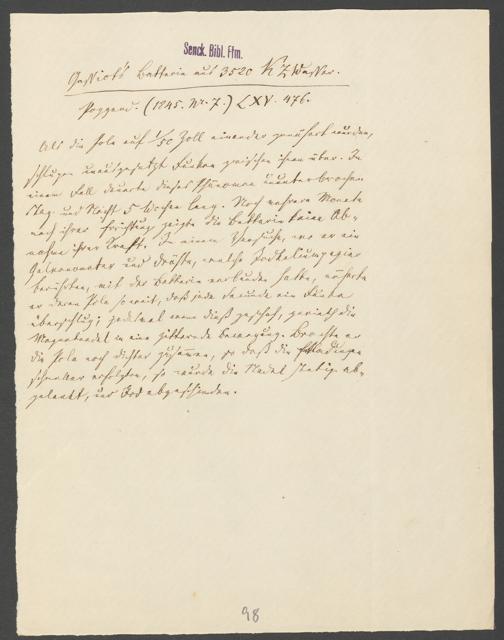 Senck. Bibl. Ffm.
Gassiot's Batterie aus 3520 KZ Wasser.
Poggend. (1845. Nr. 7.) LXV. 476.
Als die Pole auf 1/50 Zoll einander genähert wurden,
schlugen unausgesetzt Funken zwischen ihnen über. In
einem Fall dauerte dieses Phänomen ununterbrochen
Tag und Nacht 5 Wochen lang. Noch mehrere Monate
nach ihrer zeigte die Batterie keine Ab-
nahme ihrer Kraft. In einem Versuche, wo er ein
Galvanometer und Drähte, welche Jodkaliumpapier
berührten, mit der Batterie verbunden hatte, näherte
er deren Pole so weit, daß jede Secunde ein Funke
überschlug; jedesmal wenn dieß geschah, gerieth die
Magnetnadel in eine zitternde Bewegung. Brachte er
die Pole noch dichter zusammen, so daß die Entladungen
schneller erfolgten, so wurde die Nadel stetig ab-
gelenkt, und Jod abgeschieden.
98